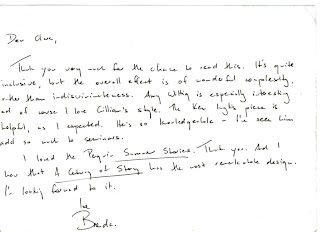 Dear Clive,
Thank you very much for the chance to read this. It's quite
inclusive, but the overall effect is of wonderful complexity,
rather than indiscriminateness. Amy Witting is especially interesting
and of course I love Gillian's style. The Ken piece is
helpful, as I expected. He's so knowledgeable – I've seen him
add so much to seminars.
I loved the Penguin Summer Stories. Thank you. And I
how that A Century of Story has the most remarkable design.
I'm looking forward to it.